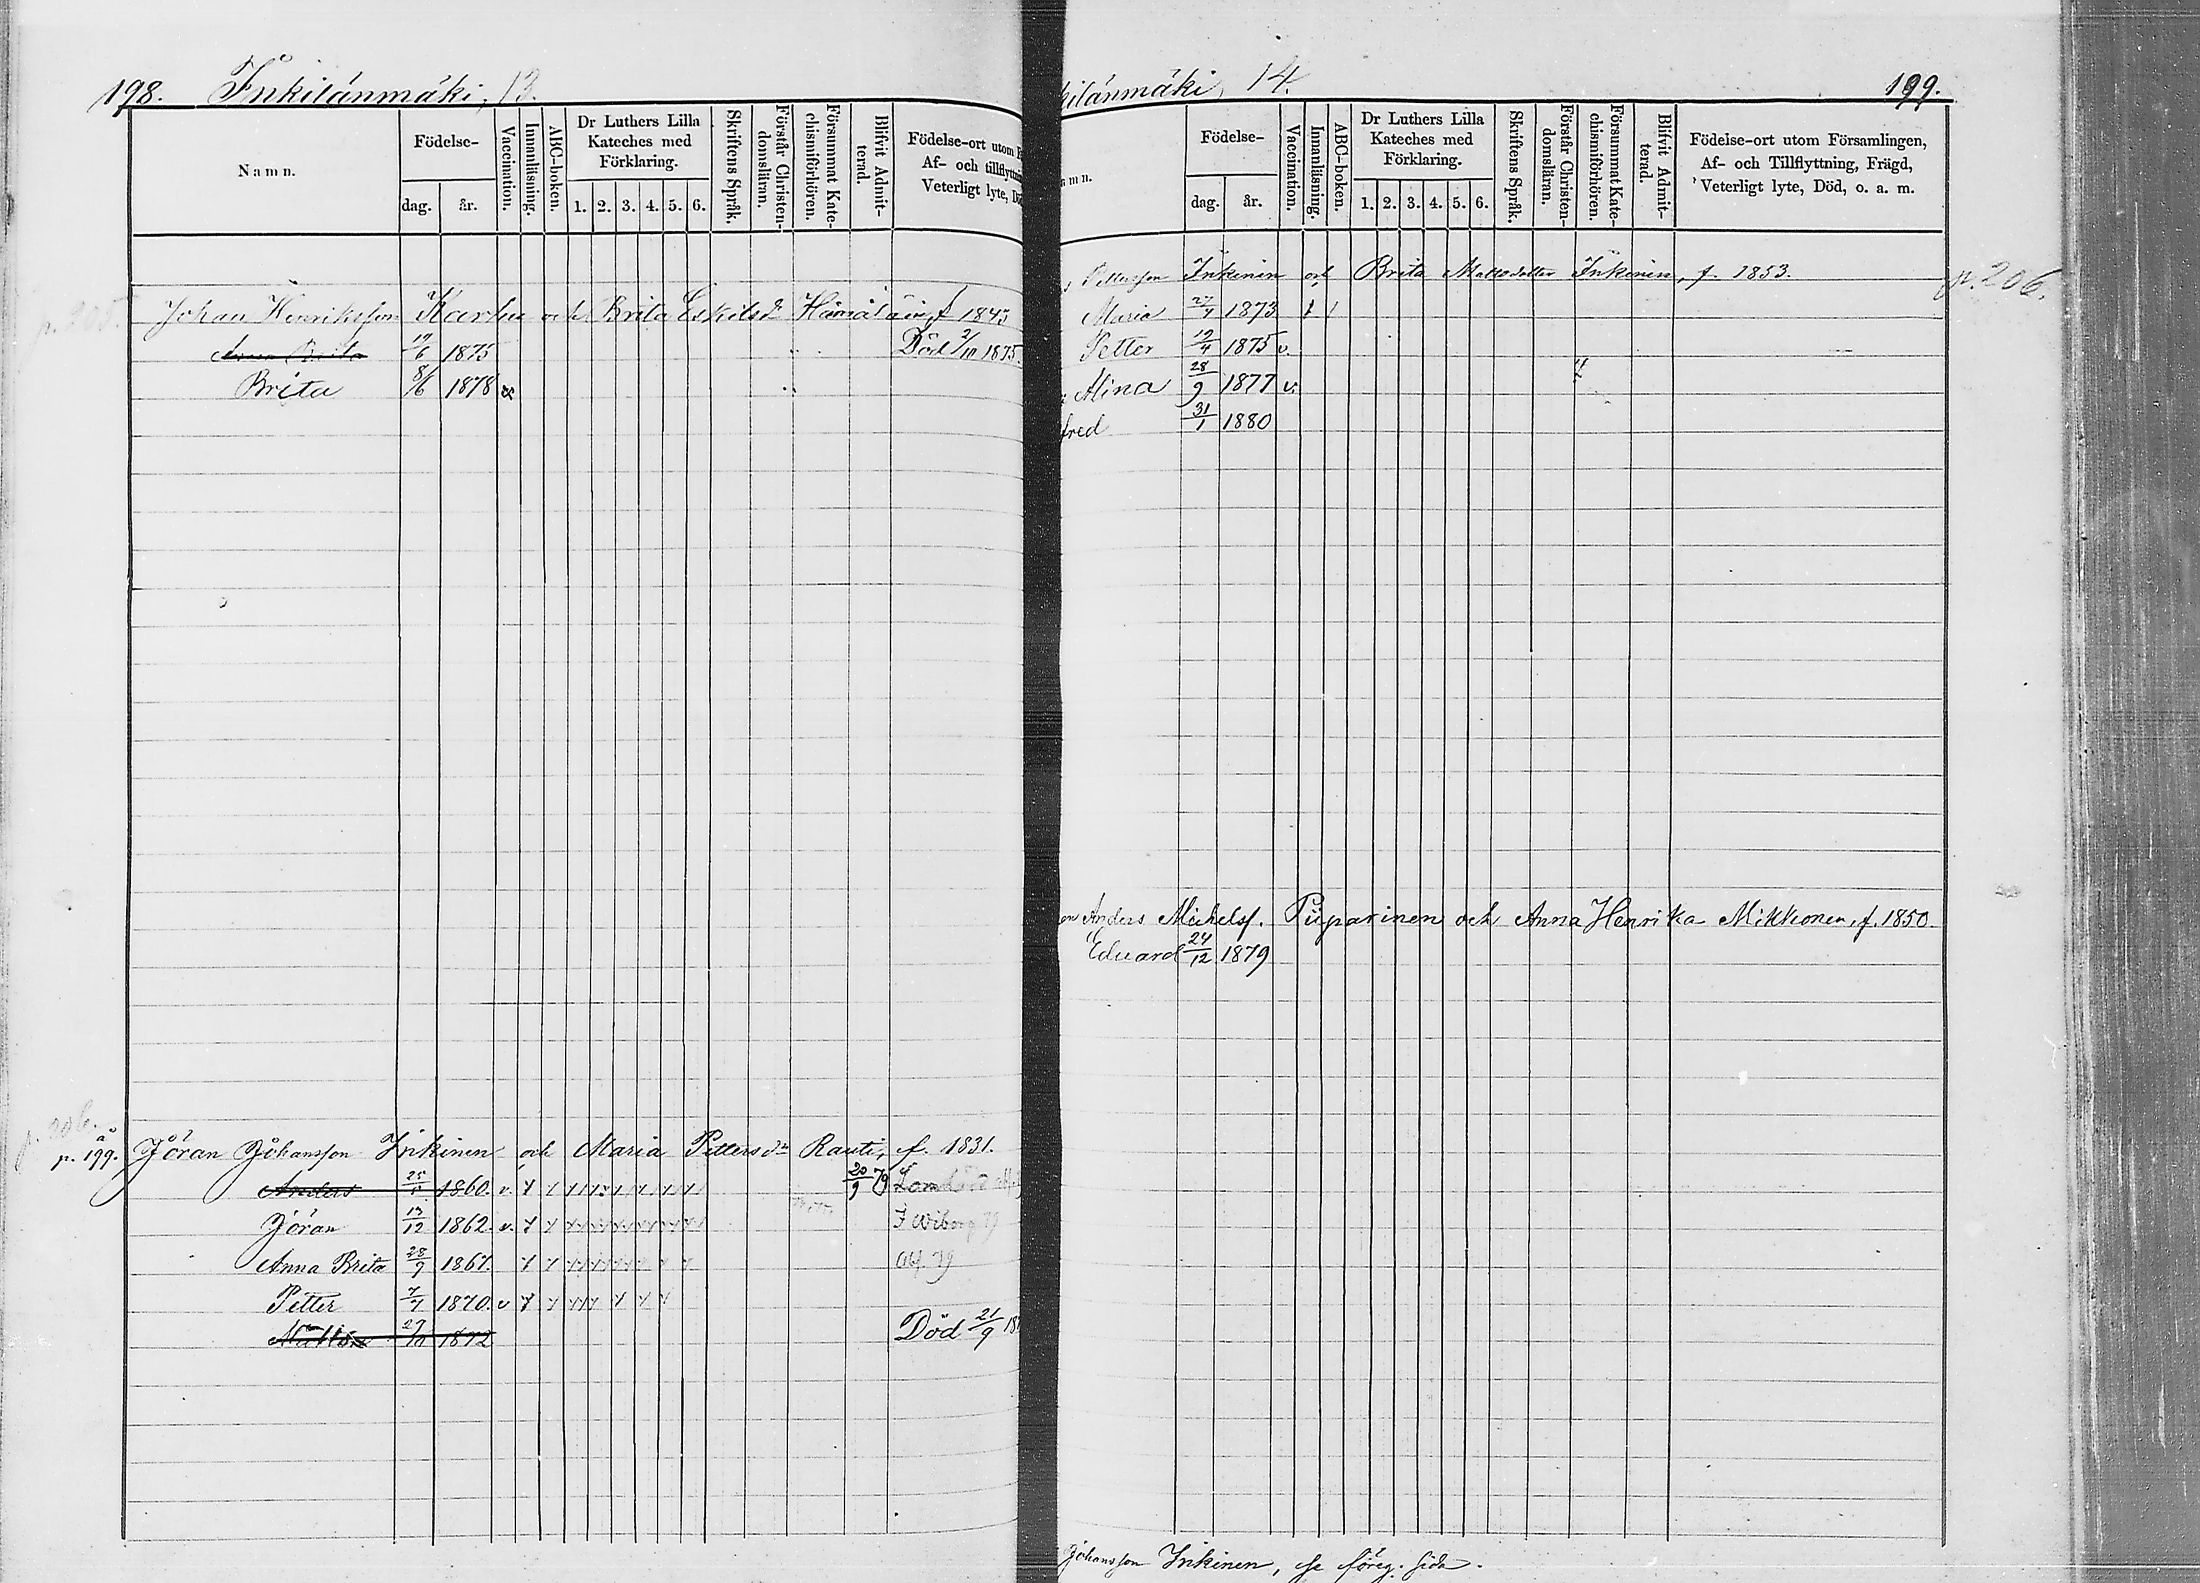 198. Inkilänmäki, 13.
Namn.
Födelse-
dag. år.
Vaccination.
Innanläsning.
ABC-boken.
Dr Luthers Lilla Kateches med Förklaring.
1. 2. 3. 4. 5. 6.
Skriftens Språk.
Förstår Christen-domsläran.
Försummat Kate-chismiförhören.
Blifvit Admit-terad.
Födelse-ort utom
Af- och tillflyttnin
Veterligt lyte, Dö
Johan Henriksson Karhu och Brita Eskilsd:r Hämäläin, f 1843
Anna Brita 19/6 1875 Död 2/10 1875.
Brita 8/6 1878
p. 206.
å p. 199. Jöran Johansson Inkinen och Maria Petters d:r Rauti, f. 1831.
Anders 25/5 1860. v. 20/9 79
Jöran 13/12 1862. v. I Wiborg 79
Anna Brita 28/9 1867.
Petter 7/7 1870. v
1872 Död 21/9 18
kilänmäki, 14. 199.
mn.
Födelse-
dag. år.
Vaccination.
Innanläsning.
ABC-boken.
Dr Luthers Lilla Kateches med Förklaring.
1. 2. 3. 4. 5. 6.
Skriftens Språk.
Förstår Christen-domsläran.
Försummat Kate-chismiförhören.
Blifvit Admit-terad.
Födelse-ort utom Församlingen,
Af- och Tillflyttning, Frägd,
Veterligt lyte, Död, o. a. m.
Pettersson Inkinen och Brita Mattsdotter Inkinen, f. 1853. p. 206.
Maria 27/7 1873
Petter 12/4 1875 v.
Mina 28/9 1877 v.
fred 31/1 1880
Anders Michelss. Piiparinen och Anna Henrika Mikkonen, f. 1850.
Eduard 24/12 1879
Johansson Inkinen, se föreg. sida.